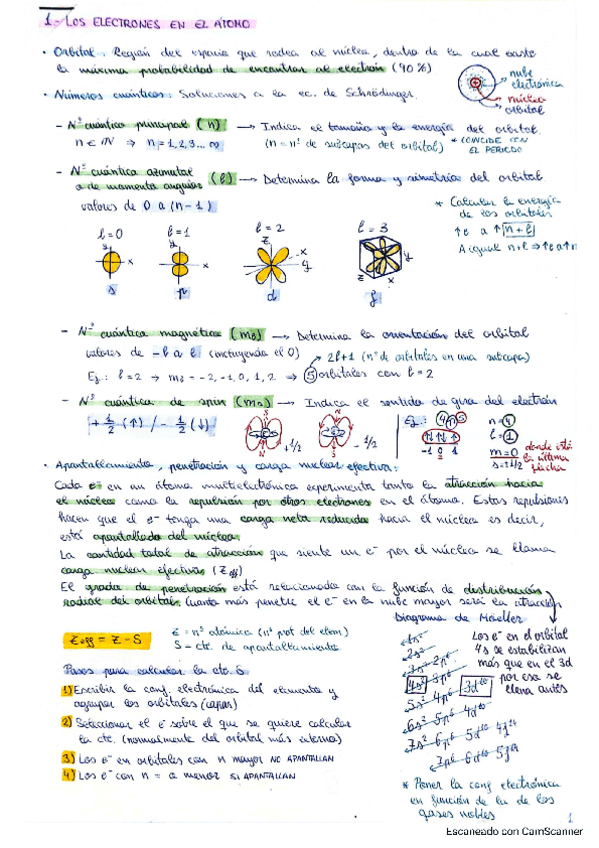 1- LOS ELECTRONES EN EL ÁTOMO
· Orbital: Región del espacio que rodea al núcleo, dentro de la cual existe
la máxima probabilidad de encontrar al electrón (90%)
nube
electrónica
núcleo
orbital
· Números cuánticos: Soluciones a la ec. de Schrödinger.
- Nº cuántico principal (n) → Indica el tamaño y la energía del orbital.
n ∈ ℕ ⇒ n = 1, 2, 3... ∞ (n = nº de subcapas del orbital) * COINCIDE CON
EL PERIODO
- Nº cuántico azimutal
o de momento angular (l) → Determina la forma y simetría del orbital
valores de 0 a (n-1)
* Calcular la energía
de los orbitales
↑e a ↑ n+l
A igual n+l ⇒ ↑e a ↑n
l=0 l=1 l=2 l=3
z x x z x y z x y
s p d f
- Nº cuántico magnético (ml) → Determina la orientación del orbital
valores de -l a l (incluyendo el 0) 2l+1 (nº de orbitales en una subcapa)
Ej.: l=2 → ml = -2, -1, 0, 1, 2 ⇒ 5 orbitales con l=2
- Nº cuántico de spin (ms) → Indica el sentido de giro del electrón
+ 1/2 (↑) / - 1/2 (↓)
S N +1/2
N S -1/2
Ej.: 4p5
-1 0 1
n = 4
l = 1
m = 0
s = ±1/2
donde está
la última
flecha
· Apantallamiento, penetración y carga nuclear efectiva:
Cada e⁻ en un átomo multielectrónico experimenta tanto la atracción hacia
el núcleo como la repulsión por otros electrones en el átomo. Estas repulsiones
hacen que el e⁻ tenga una carga neta reducida hacia el núcleo es decir,
está apantallado del núcleo.
La cantidad total de atracción que siente un e⁻ por el núcleo se llama
carga nuclear efectiva (Zeff)
El grado de penetración está relacionado con la función de distribución
radial del orbital. Cuanto más penetre el e⁻ en la nube mayor será la atracción
Zeff = Z - S
Z = nº atómico (nº prot del elem)
S - cte. de apantallamiento
Pasos para calcular la cte. S
1) Escribir la conf. electrónica del elemento y
agrupar los orbitales (capas)
2) Seleccionar el e⁻ sobre el que se quiere calcular
la cte. (normalmente del orbital más externo)
3) Los e⁻ en orbitales con n mayor NO APANTALLAN
4) Los e⁻ con n = o menor SI APANTALLAN
Diagrama de Moeller
1s²
2s²
3s² 2p⁶
4s² 3p⁶
5s² 4p⁶ 3d¹⁰
6s² 5p⁶ 4d¹⁰
7s² 6p⁶ 5d¹⁰ 4f¹⁴
7p⁶ 6d¹⁰ 5f¹⁴
Los e⁻ en el orbital
4s se estabilizan
más que en el 3d
por eso se
llena antes
* Poner la conf electrónica
en función de la de los
gases nobles
1
Escaneado con CamScanner